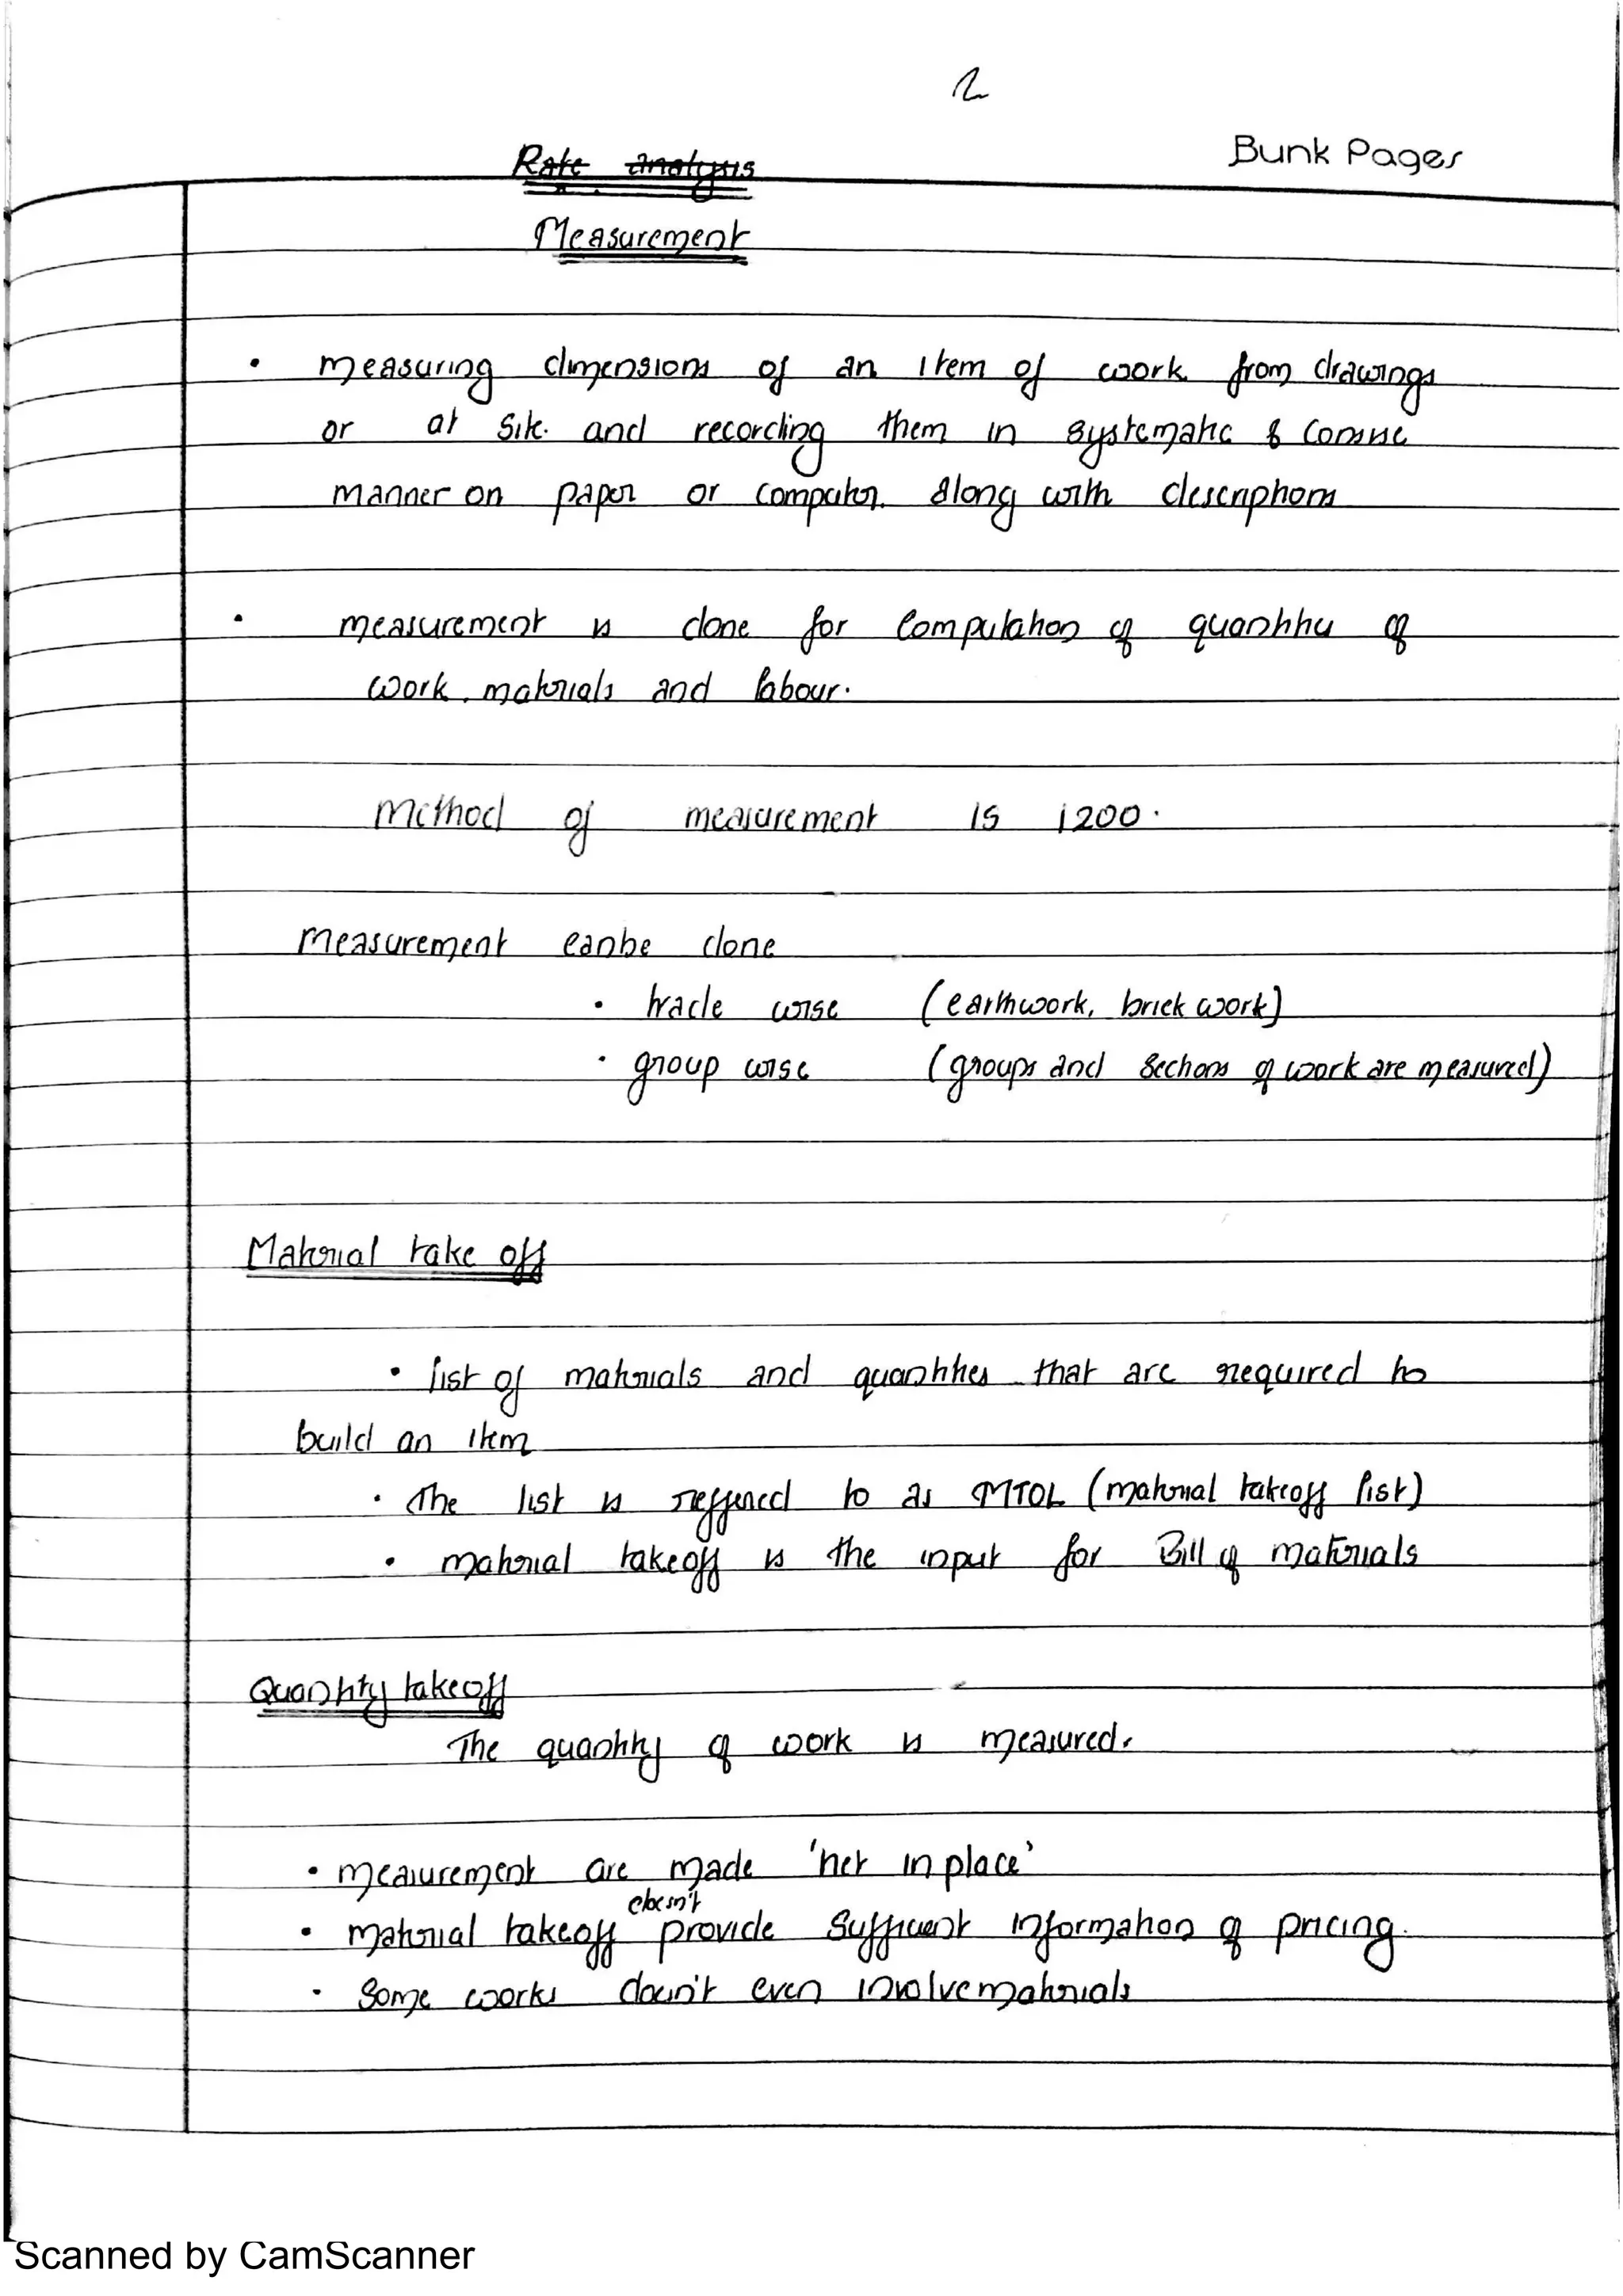 2
Bunk Pages
Rate analysis
Measurement
• measuring dimensions of an item of work from drawings
or at site and recording them in systematic & consise
manner on paper or computer. along with descriptions
• measurement is done for computation of quantity of
work, materials and labour.
method of measurement IS 1200.
measurement canbe done
• trade wise (earthwork, brick work)
• group wise (groups and sections of work are measured)
Material take off
• list of materials and quantities that are required to
build an item
• The list is reffered to as MTOL (material takeoff list)
• material takeoff is the input for Bill of materials
Quantity takeoff
The quantity of work is measured.
• measurement are made 'net in place'
doesn't
• material takeoff provide sufficient information of pricing.
• Some works doesn't even involve materials
Scanned by CamScanner